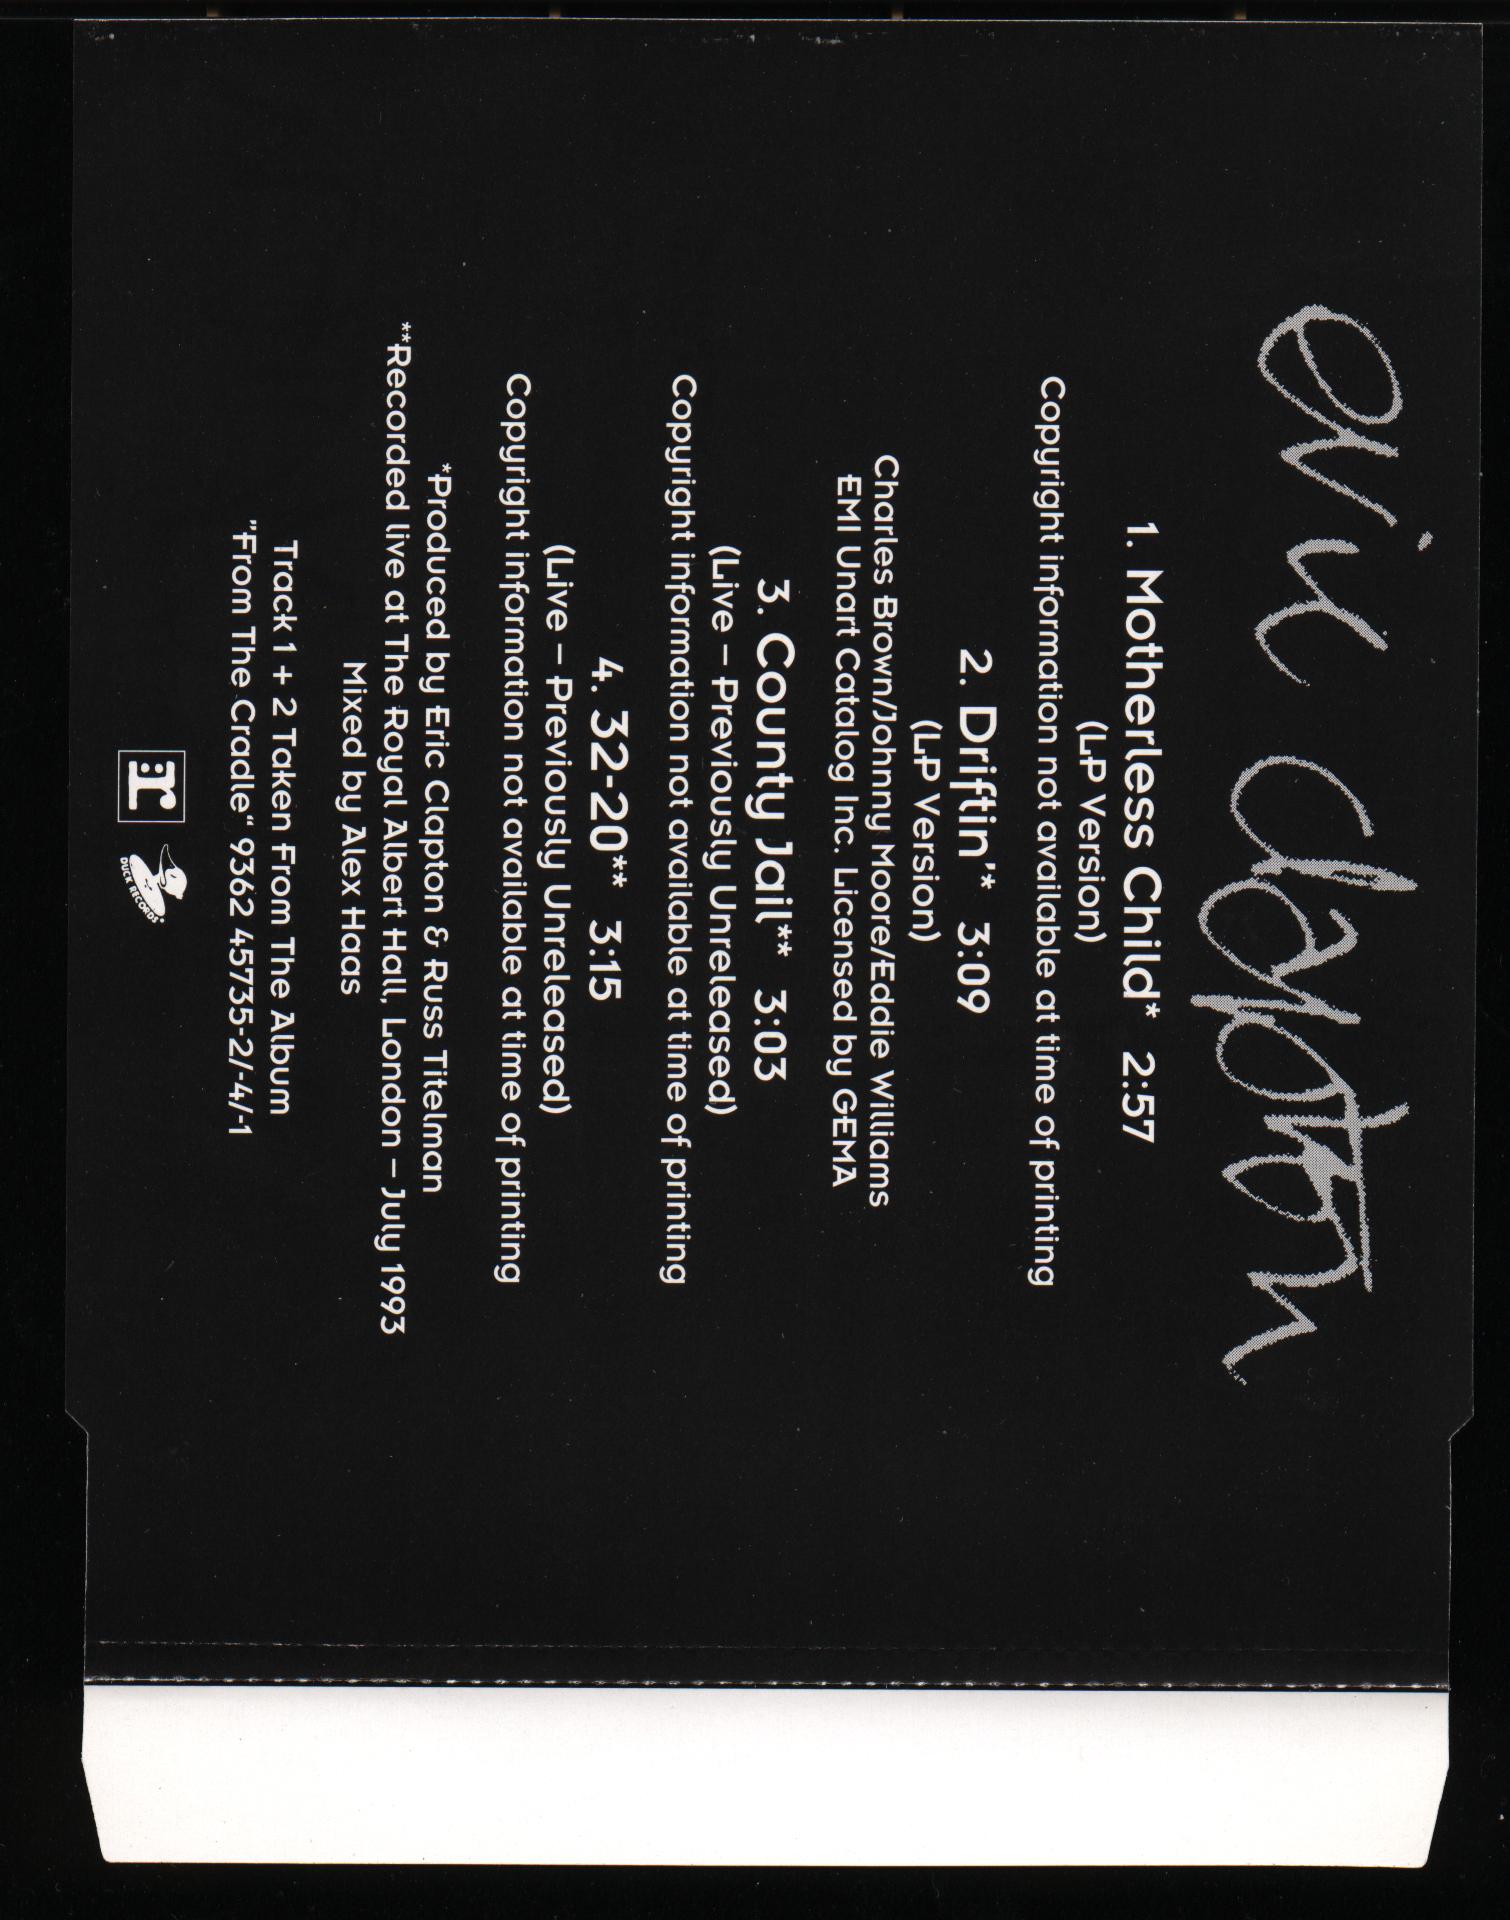 eric clapton
1. Motherless Child* 2:57
(LP Version)
Copyright information not available at time of printing
2. Driftin'* 3:09
(LP Version)
Charles Brown/Johnny Moore/Eddie Williams
EMI Unart Catalog Inc. Licensed by GEMA
3. County Jail** 3:03
(Live – Previously Unreleased)
Copyright information not available at time of printing
4. 32-20** 3:15
(Live – Previously Unreleased)
Copyright information not available at time of printing
*Produced by Eric Clapton & Russ Titelman
**Recorded live at The Royal Albert Hall, London – July 1993
Mixed by Alex Haas
Track 1 + 2 Taken From The Album
"From The Cradle“ 9362 45735-2/-4/-1
r
DUCK RECORDS